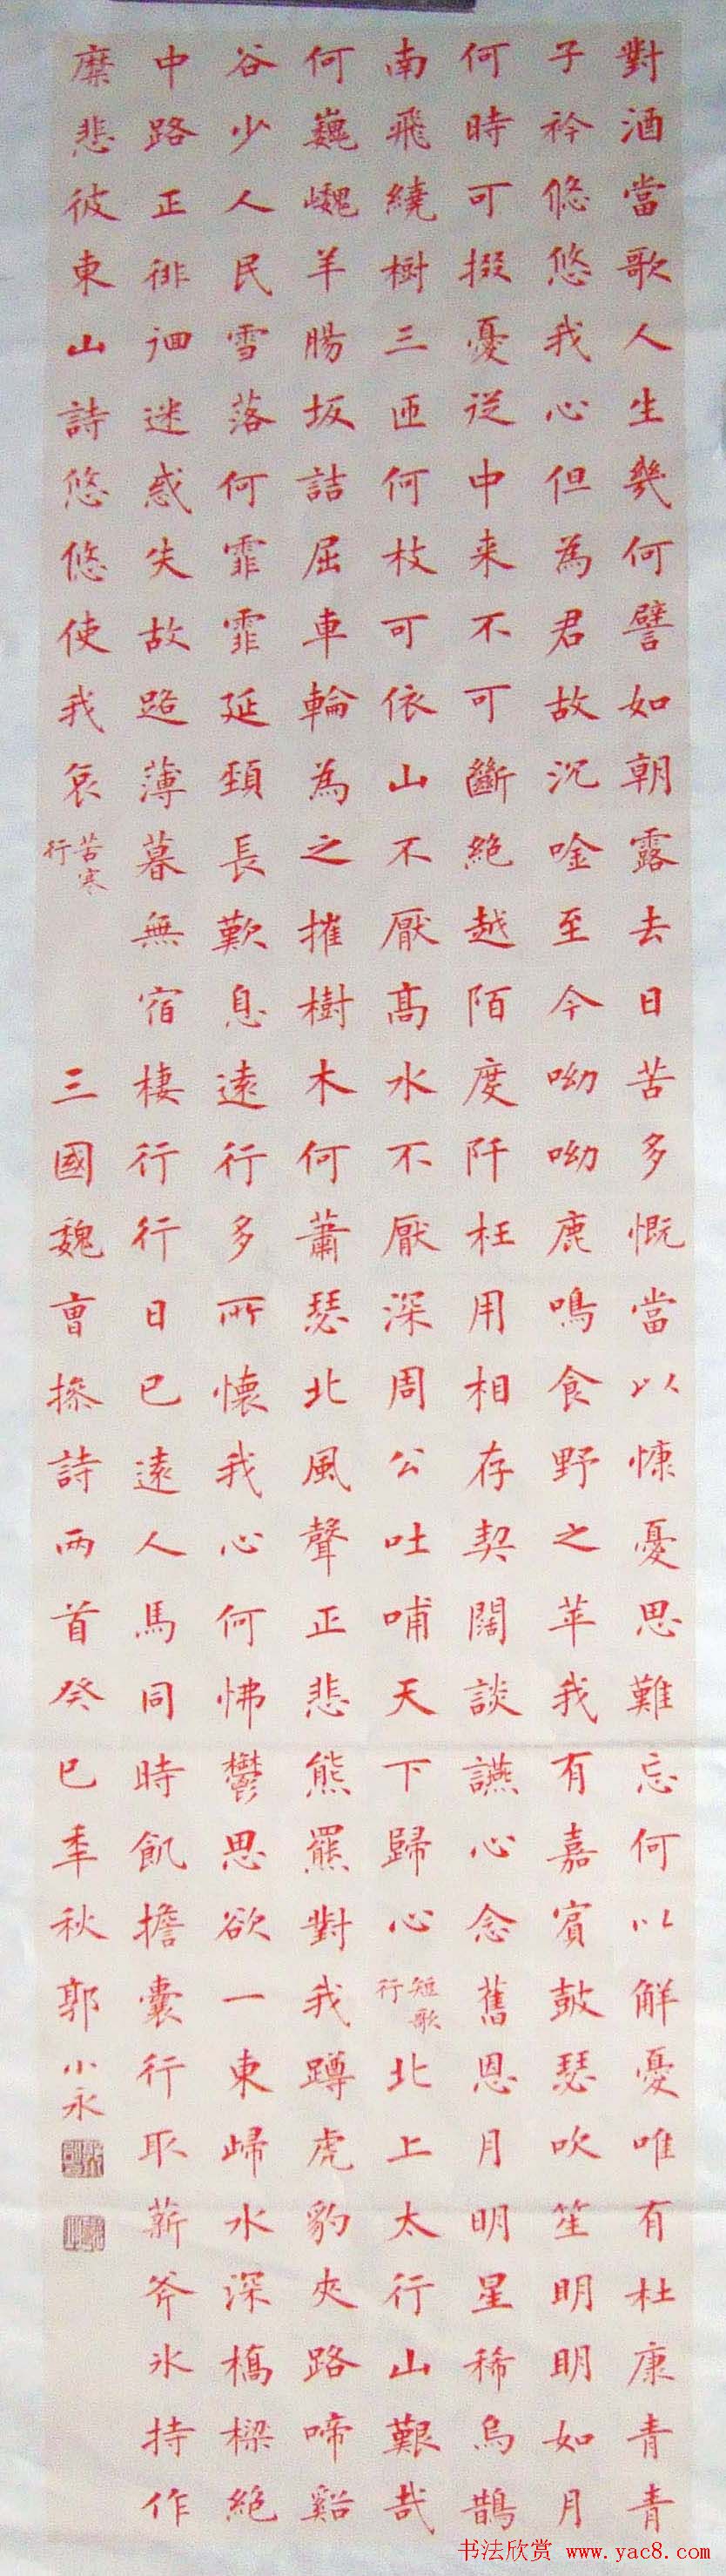 對酒當歌人生幾何譬如朝露去日苦多慨當以慷憂思難忘何以解憂唯有杜康青青
子衿悠悠我心但為君故沉唫至今呦呦鹿鳴食野之苹我有嘉賓鼓瑟吹笙明明如月
何時可掇憂從中来不可斷絶越陌度阡枉用相存契闊談讌心念舊恩月明星稀烏鵲
南飛繞樹三匝何枝可依山不厭高水不厭深周公吐哺天下歸心短歌行北上太行山艱哉
何巍巍羊腸坂詰屈車輪為之摧樹木何蕭瑟北風聲正悲熊羆對我蹲虎豹夾路啼谿
谷少人民雪落何霏霏延頸長歎息遠行多所懷我心何怫鬱思欲一東歸水深橋樑絶
中路正徘徊迷惑失故路薄暮無宿棲行行日已遠人馬同時飢擔囊行取薪斧氷持作
糜悲彼東山詩悠悠使我哀苦寒行
三國魏曹操詩兩首癸巳年秋郭小永
书法欣赏 www.yac8.com